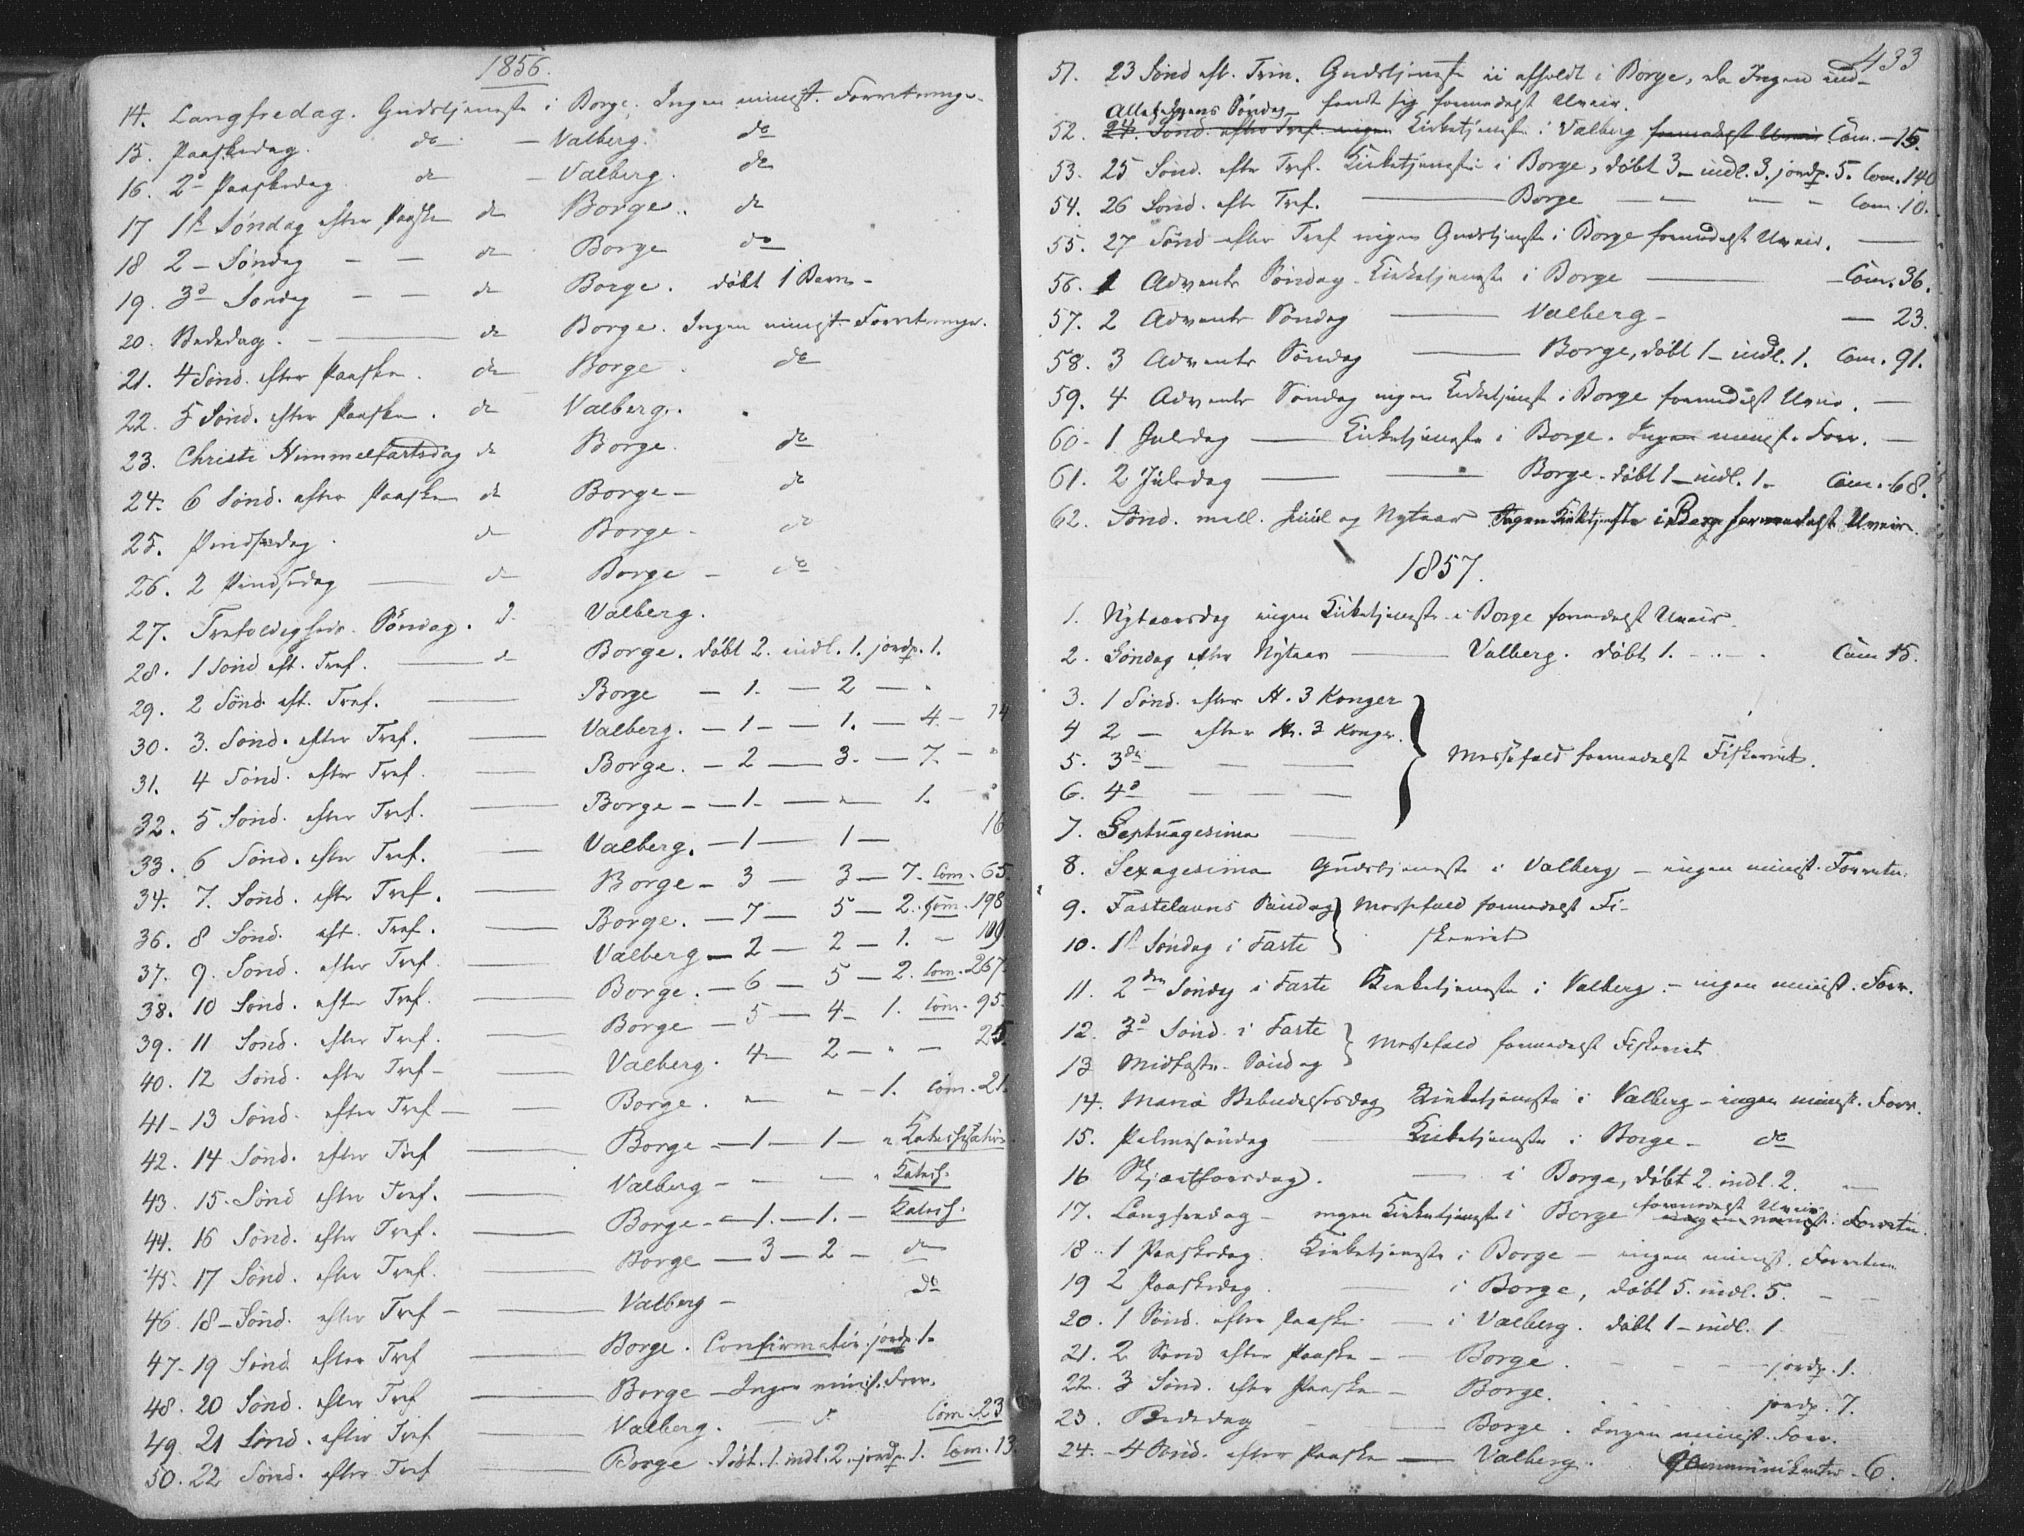 1856.
14. Langfredag. Gudstjeneste i Borge. Ingen minist. Forretninger.
15. Paaskedag. do — Valberg. do
16. 2d Paaskedag do — Valberg. do
17 1ste Søndag efter Paaske do Borge. do
18 2 — Søndag — — do Borge do
19. 3d Søndag — — do Borge. døbt 1 Barn —
20. Bededag. — do Borge. Ingen minist. Forretninger.
21. 4 Sønd. efter Paaske. do Borge. do
22. 5 Sønd. efter Paaske. do Valberg.
23. Christi Himmelfartsdag do Borge. do
24. 6 Sønd. efter Paaske do Borge — do
25. Pindsedag. do Borge — do
26. 2 Pindsedag — do Borge — do
27. Trefoldigheds Søndag. d. Valberg.
28. 1 Sønd eft. Tref. — do Borge. døbt 2. indl. 1. jordp. 1.
29. 2 Sønd. eft. Tref. — Borge — 1. — 2 — "
30. 3. Sønd. efter Tref. — Valberg. — 1 — — 1. — 4 — 14
31. 4 Sønd. efter Tref. — Borge. — 2 — 3. — 7. — "
32. 5 Sønd. efter Tref. — Borge — — 1. — " — 1. — "
33. 6 Sønd. efter Tref. — Valberg. — 1 — 1 — 16
34. 7. Sønd. efter Tref. — Borge — 3 — 3 — 7. Com. 65.
36. 8 Sønd. eft. Tref. — Borge. — 7 — 5 — 2. Com. 198
37. 9. Sønd. efter Tref. — Valberg — 2 — 2 — 1. — 109
38. 10 Sønd. efter Tref. — Borge. — 6 — 5 — 2. Com. 267.
39. 11 Sønd. efter Tref. — Borge — 5 — 4 — 1. Com. 95.
40. 12 Sønd. efter Tref — Valberg. 4 — 2 — " — 25.
41 — 13 Sønd. efter Tref — Borge. " " — 1. Com. 21.
42. 14 Sønd. efter Tref — Borge — 1 — 1 — " Katechisation
43. 15. Sønd efter Tref. — Valberg — — — " Katech.
44. 16 Sønd. efter Tref. — Borge — 1. — 1. — Katech.
45. 17 Sønd. efter Tref. — Borge — 3 — 2 — do
46. 18 — Sønd. efter Tref — Valberg — do
47 — 19 Sønd efter Tref — Borge. Confirmation. jordp. 1.
48. 20 Sønd. efter Tref — Borge — Ingen minist. Forr.
49. 21 Sønd. efter Tref — Valberg. — Com. 23
50. 22 Sønd. efter Tref — Borge. døbt. 1. indl. 2. jordp. 1. Com. 13.
433
51. 23 Sønd eft. Trin. Gudstjeneste ei afholdt i Borge, da Ingen ind-
fandt sig formedelst Uveir.
Allehelgens Søndag
52. 24. Sønd. efter Tref. ingen Kirketjeneste i Valberg formedelst Uveir Com. — 15.
53. 25 Sønd. efter Tref. Kirketjeneste i Borge, døbt 3 — indl. 3. jordp. 5. Com. 140
54. 26 Sønd. efter Tref. — Borge — — — — Com. 10.
55. 27 Sønd efter Tref ingen Gudstjeneste i Borge formedelst Uveir. —
56. 1 Advents Søndag Kirketjeneste i Borge — Com. 36.
57. 2 Advents Søndag — Valberg — — 23.
58. 3 Advents Søndag — Borge, døbt 1 — indl. 1. Com. 91.
59. 4 Advents Søndag ingen Kirketjenest i Borge formedelst Uveir. —
60. 1 Juledag — Kirketjeneste i Borge. Ingen minist. Forr. —
61. 2 Juledag — — Borge. døbt 1 — indl. 1. Com. 68.
62. Sønd. mell. Juul og Nytaar Ingen Kirketjeneste i Borge formedelst Uveir.
1857.
1. Nytaarsdag ingen Kirketjeneste i Borge formedelst Uveir.
2. Søndag efter Nytaar — Valberg. døbt 1. — — Com 15.
3. 1 Sønd. efter H. 3 Konger
4 2 — efter H. 3 Konger.
5. 3die — — — — Messefald formedelst Fiskeriet.
6. 4d — — — —
7. Septuagesima —
8. Sexagesima Gudstjeneste i Valberg — ingen minist. Forretn.
9. Fastelavns Søndag Messefald formedelst Fi-
10. 1ste Søndag i Faste skeriet
11. 2den Søndag i Faste Kirketjeneste i Valberg. — ingen minist. Forr.
12. 3d Sønd. i Faste Messefald formedelst Fiskeriet
13 Midfaste Søndag
14. Maria Bebudelsesdag Kirketjeneste i Valberg — ingen minist. Forr.
15. Palmesøndag Kirketjeneste i Borge — do
16 Skjærthorsdag. — i Borge, døbt 2. indl. 2. —
17. Langfredag — ingen Kirketjeneste i Borge formedelst Uveir ingen minist. Forretn.
18. 1 Paaskedag. Kirketjeneste i Borge — ingen minist. Forretn.
19 2 Paaskedag — i Borge, døbt 5. indl. 5. — —
20. 1 Sønd. efter Paaske — — i Valberg. døbt 1 — indl. 1.
21. 2 Sønd efter Paaske — — Borge. — — — jordp. 1.
22. 3 Sønd. efter Paaske — Borge. jordp. 7.
23. Bededag — — Borge. Ingen minist. Forr.
24. — 4 Sønd. efter Paaske — Valberg. Communikanter — 6.